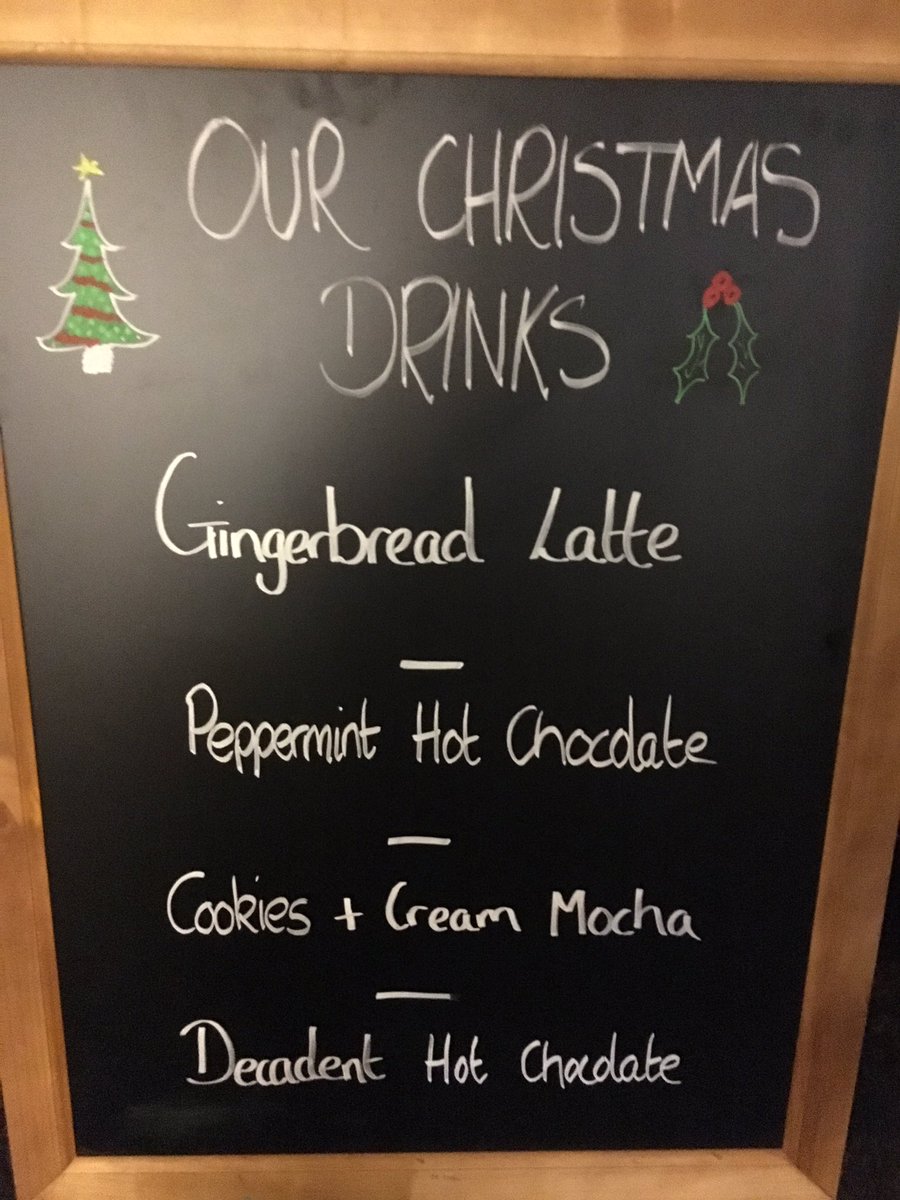 OUR CHRISTMAS
DRINKS
Gingerbread Latte
Peppermint Hot Chocolate
Cookies + Cream Mocha
Decadent Hot Chocolate